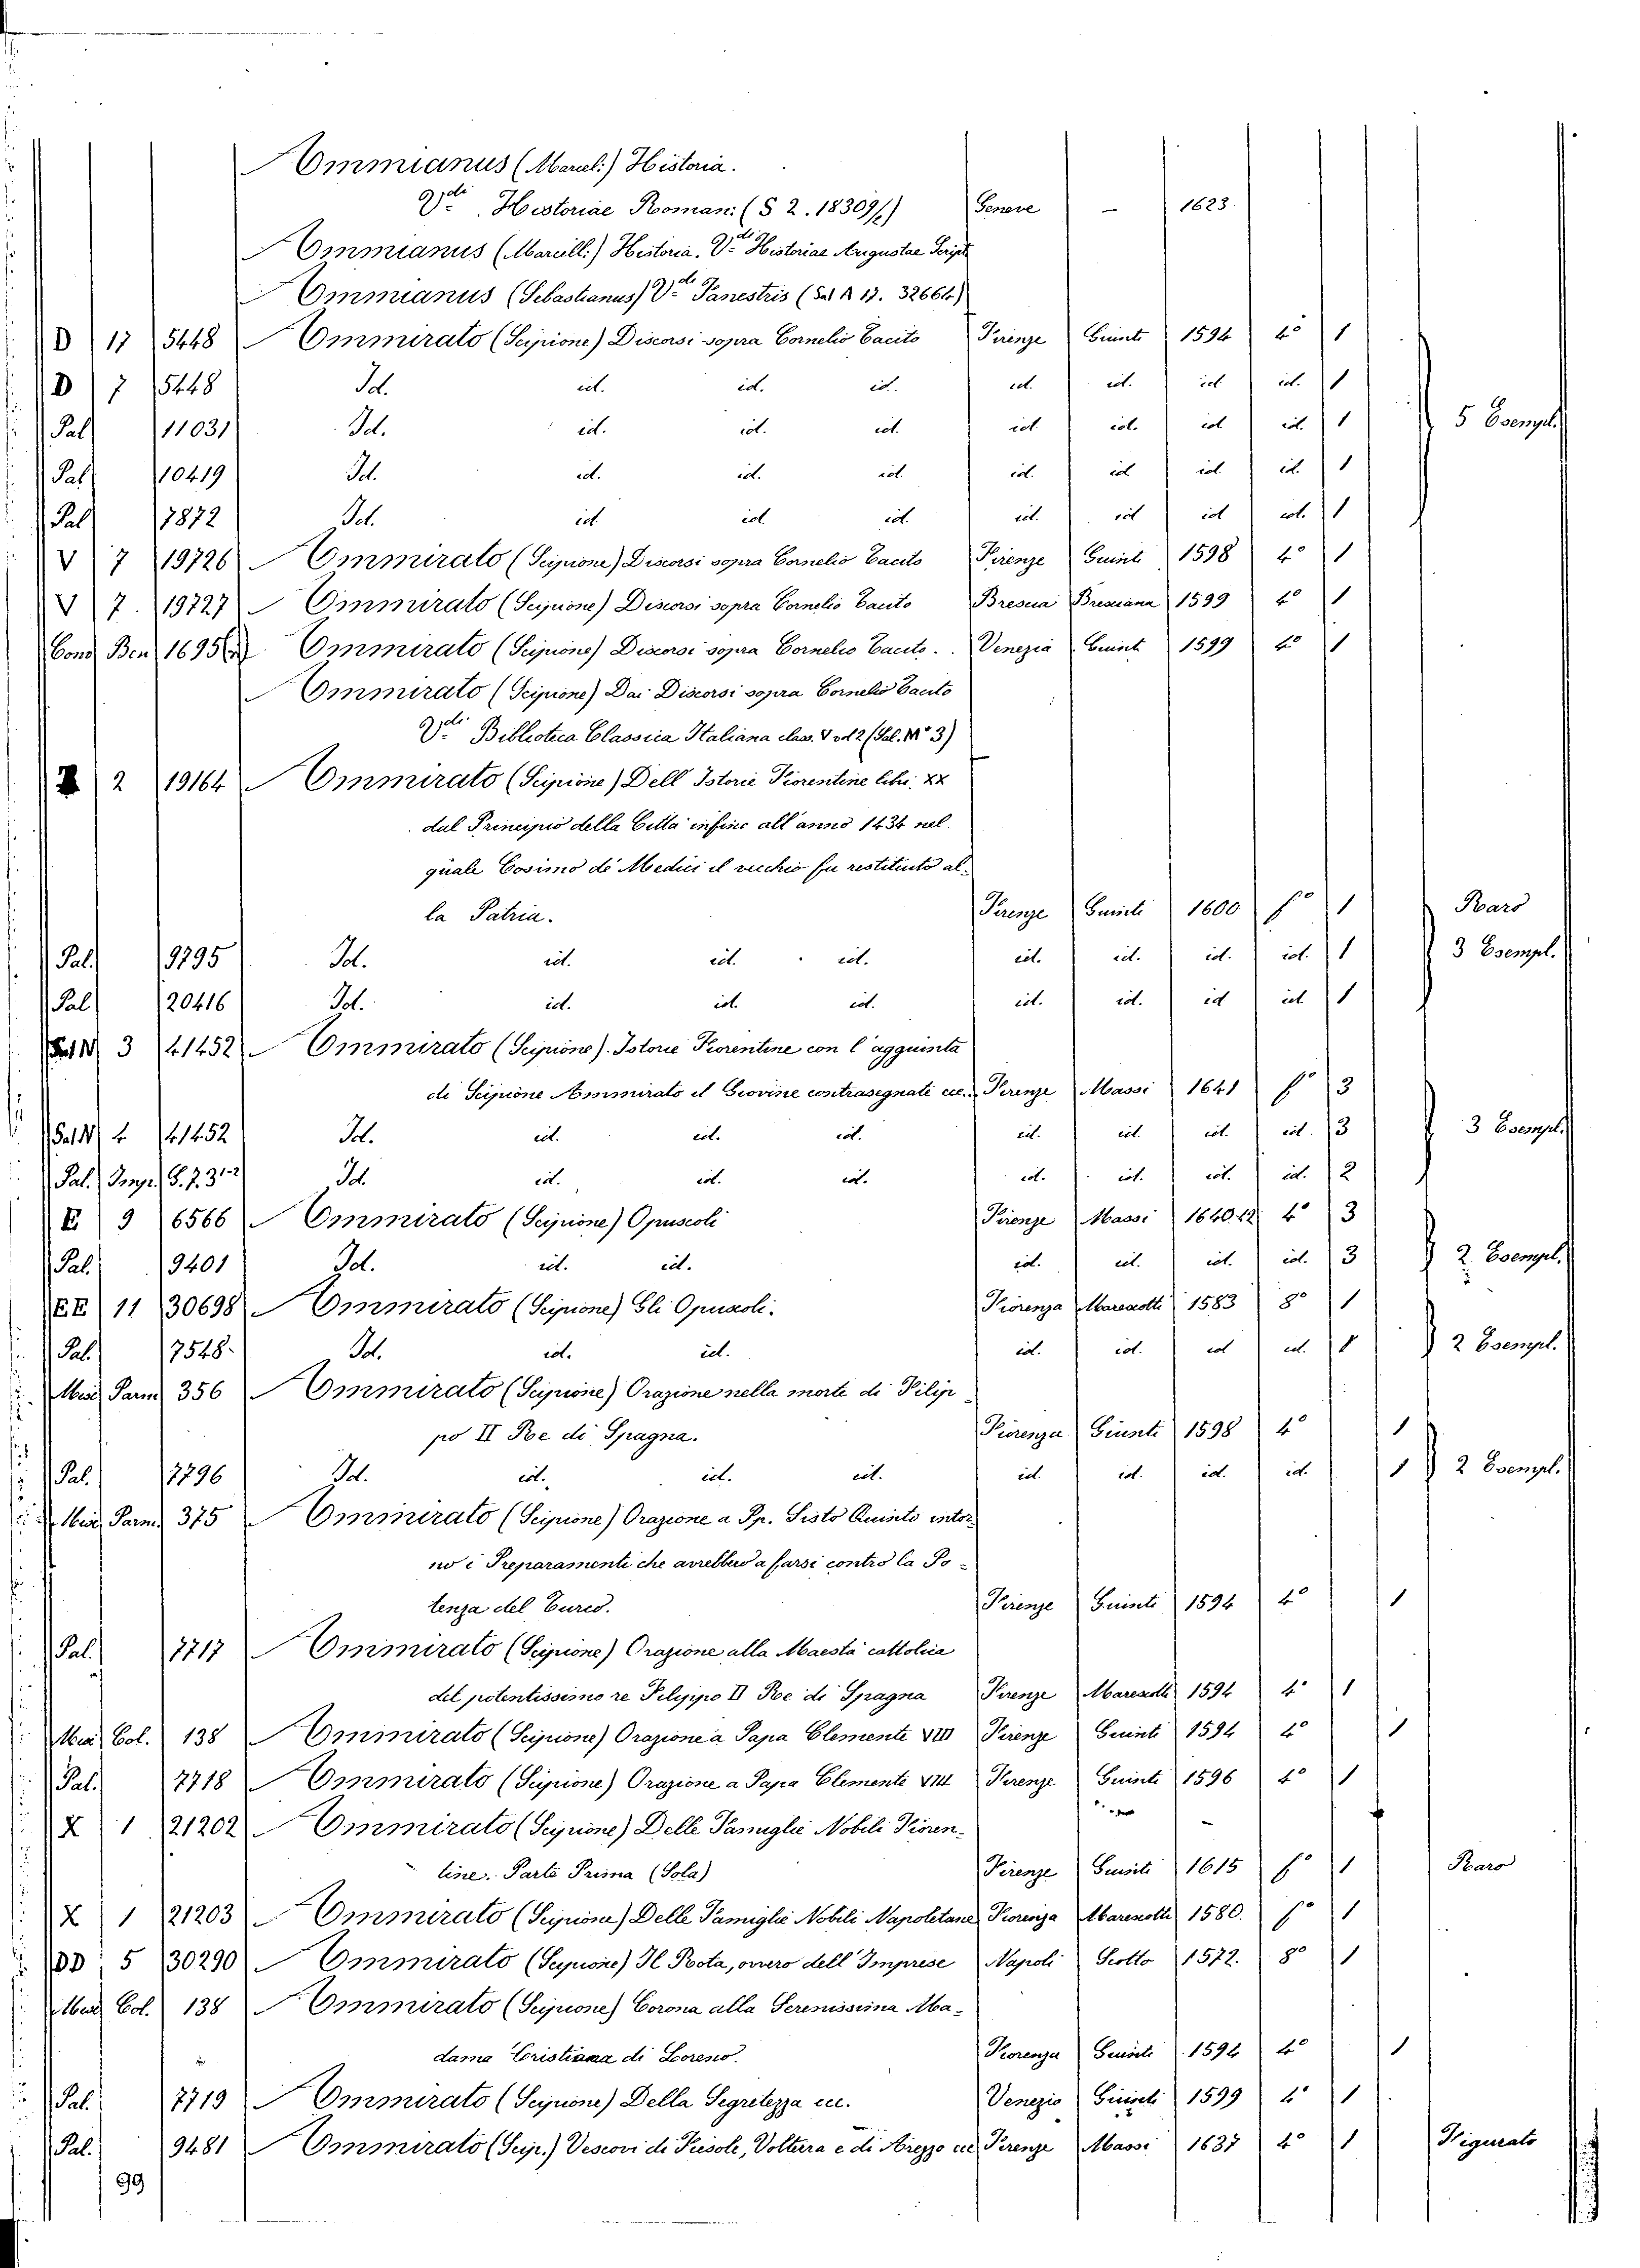 Ammianus (Marcel:) Historia.
V.di Historiae Roman: (S 2. 18309/1) Geneve — 1623
Ammianus (Marcell:) Historia. V.di Historiae Augustae Script
Ammianus (Sebastianus) V.di Panestris (Sal A 17. 32664)
D 17 5448 Ammirato (Scipione) Discorsi sopra Cornelio Tacito Firenze Giunti 1594 4° 1
D 7 5448 Id. id. id. id. id. id. id. id. 1
Pal 11031 Id. id. id. id. id. id. id id. 1 5 Esempl.
Pal 10419 Id. id. id. id. id. id id. id. 1
Pal 7872 Id. id. id. id. id. id id id. 1
V 7 19726 Ammirato (Scipione) Discorsi sopra Cornelio Tacito Firenze Giunti 1598 4° 1
V 7. 19727 Ammirato (Scipione) Discorsi sopra Cornelio Tacito Brescia Bresciana 1599 4° 1
Cons Ben 1695 Ammirato (Scipione) Discorsi sopra Cornelio Tacito. Venezia Giunti 1599 4° 1
Ammirato (Scipione) Dai Discorsi sopra Cornelio Tacito
V.di Biblioteca Classica Italiana class. V vol 2 (Sal. N° 3)
2 19164 Ammirato (Scipione) Dell' Istorie Fiorentine libri XX
dal Principio della Città infino all'anno 1434 nel
quale Cosimo de' Medici il vecchio fu restituito al-
la Patria. Firenze Giunti 1600 f° 1 Raro
Pal. 9795 Id. id. id. id. id. id. id. id. 1 3 Esempl.
Pal 20416 Id. id. id. id. id. id. id id 1
Sal N 3 41452 Ammirato (Scipione). Istorie Fiorentine con l'aggiunta
di Scipione Ammirato il Giovine contrasegnate ecc. Firenze Massi 1641 f° 3
Sal N 4 41452 Id. id. id. id. id. id. id. id. 3 3 Esempl.
Pal. Impr. G. 7. 3 1-2 Id. id. id. id. id. id. id. id. 2
E 9 6566 Ammirato (Scipione) Opuscoli Firenze Massi 1640.42 4° 3
Pal. 9401 Id. id. id. id. id. id. id. 3 2 Esempl.
EE 11 30698 Ammirato (Scipione) Gli Opuscoli. Fiorenza Marescotti 1583 8° 1
Pal. 7548. Id. id. id. id. id. id id. 1 2 Esempl.
Misc Parm 356 Ammirato (Scipione) Orazione nella morte di Filip
po II Re di Spagna. Fiorenza Giunti 1598 4° 1
Pal. 7796 Id. id. id. id. id. id. id. id. 1 2 Esempl.
Misc Parm. 375 Ammirato (Scipione) Orazione a Pp. Sisto Quinto intor
no i Preparamenti che avrebbero a farsi contro la Po-
tenza del Turco. Firenze Giunti 1594 4° 1
Pal. 7717 Ammirato (Scipione) Orazione alla Maestà cattolica
del potentissimo re Filippo II Re di Spagna Firenze Marescotti 1594 4° 1
Misc Col. 138 Ammirato (Scipione) Orazione a Papa Clemente VIII Firenze Giunti 1594 4° 1
Pal. 7718 Ammirato (Scipione) Orazione a Papa Clemente VIII Firenze Giunti 1596 4° 1
X 1 21202 Ammirato (Scipione) Delle Famiglie Nobili Fioren-
tine. Parte Prima (Sola) Firenze Giunti 1615 f° 1 Raro
X 1 21203 Ammirato (Scipione) Delle Famiglie Nobili Napoletane Fiorenza Marescotti 1580. f° 1
DD 5 30290 Ammirato (Scipione) Il Rota, ovvero dell'Imprese Napoli Scotto 1572. 8° 1
Misc Col. 138 Ammirato (Scipione) Corona alla Serenissima Ma-
dama Cristiana di Loreno. Fiorenza Giunti 1594 4° 1
Pal. 7719 Ammirato (Scipione) Della Segretezza ecc. Venezia Giunti 1599 4° 1
Pal. 9481 Ammirato (Scip.) Vescovi di Fiesole, Volterra e di Arezzo ecc Firenze Massi 1637 4° 1 Figurato
99